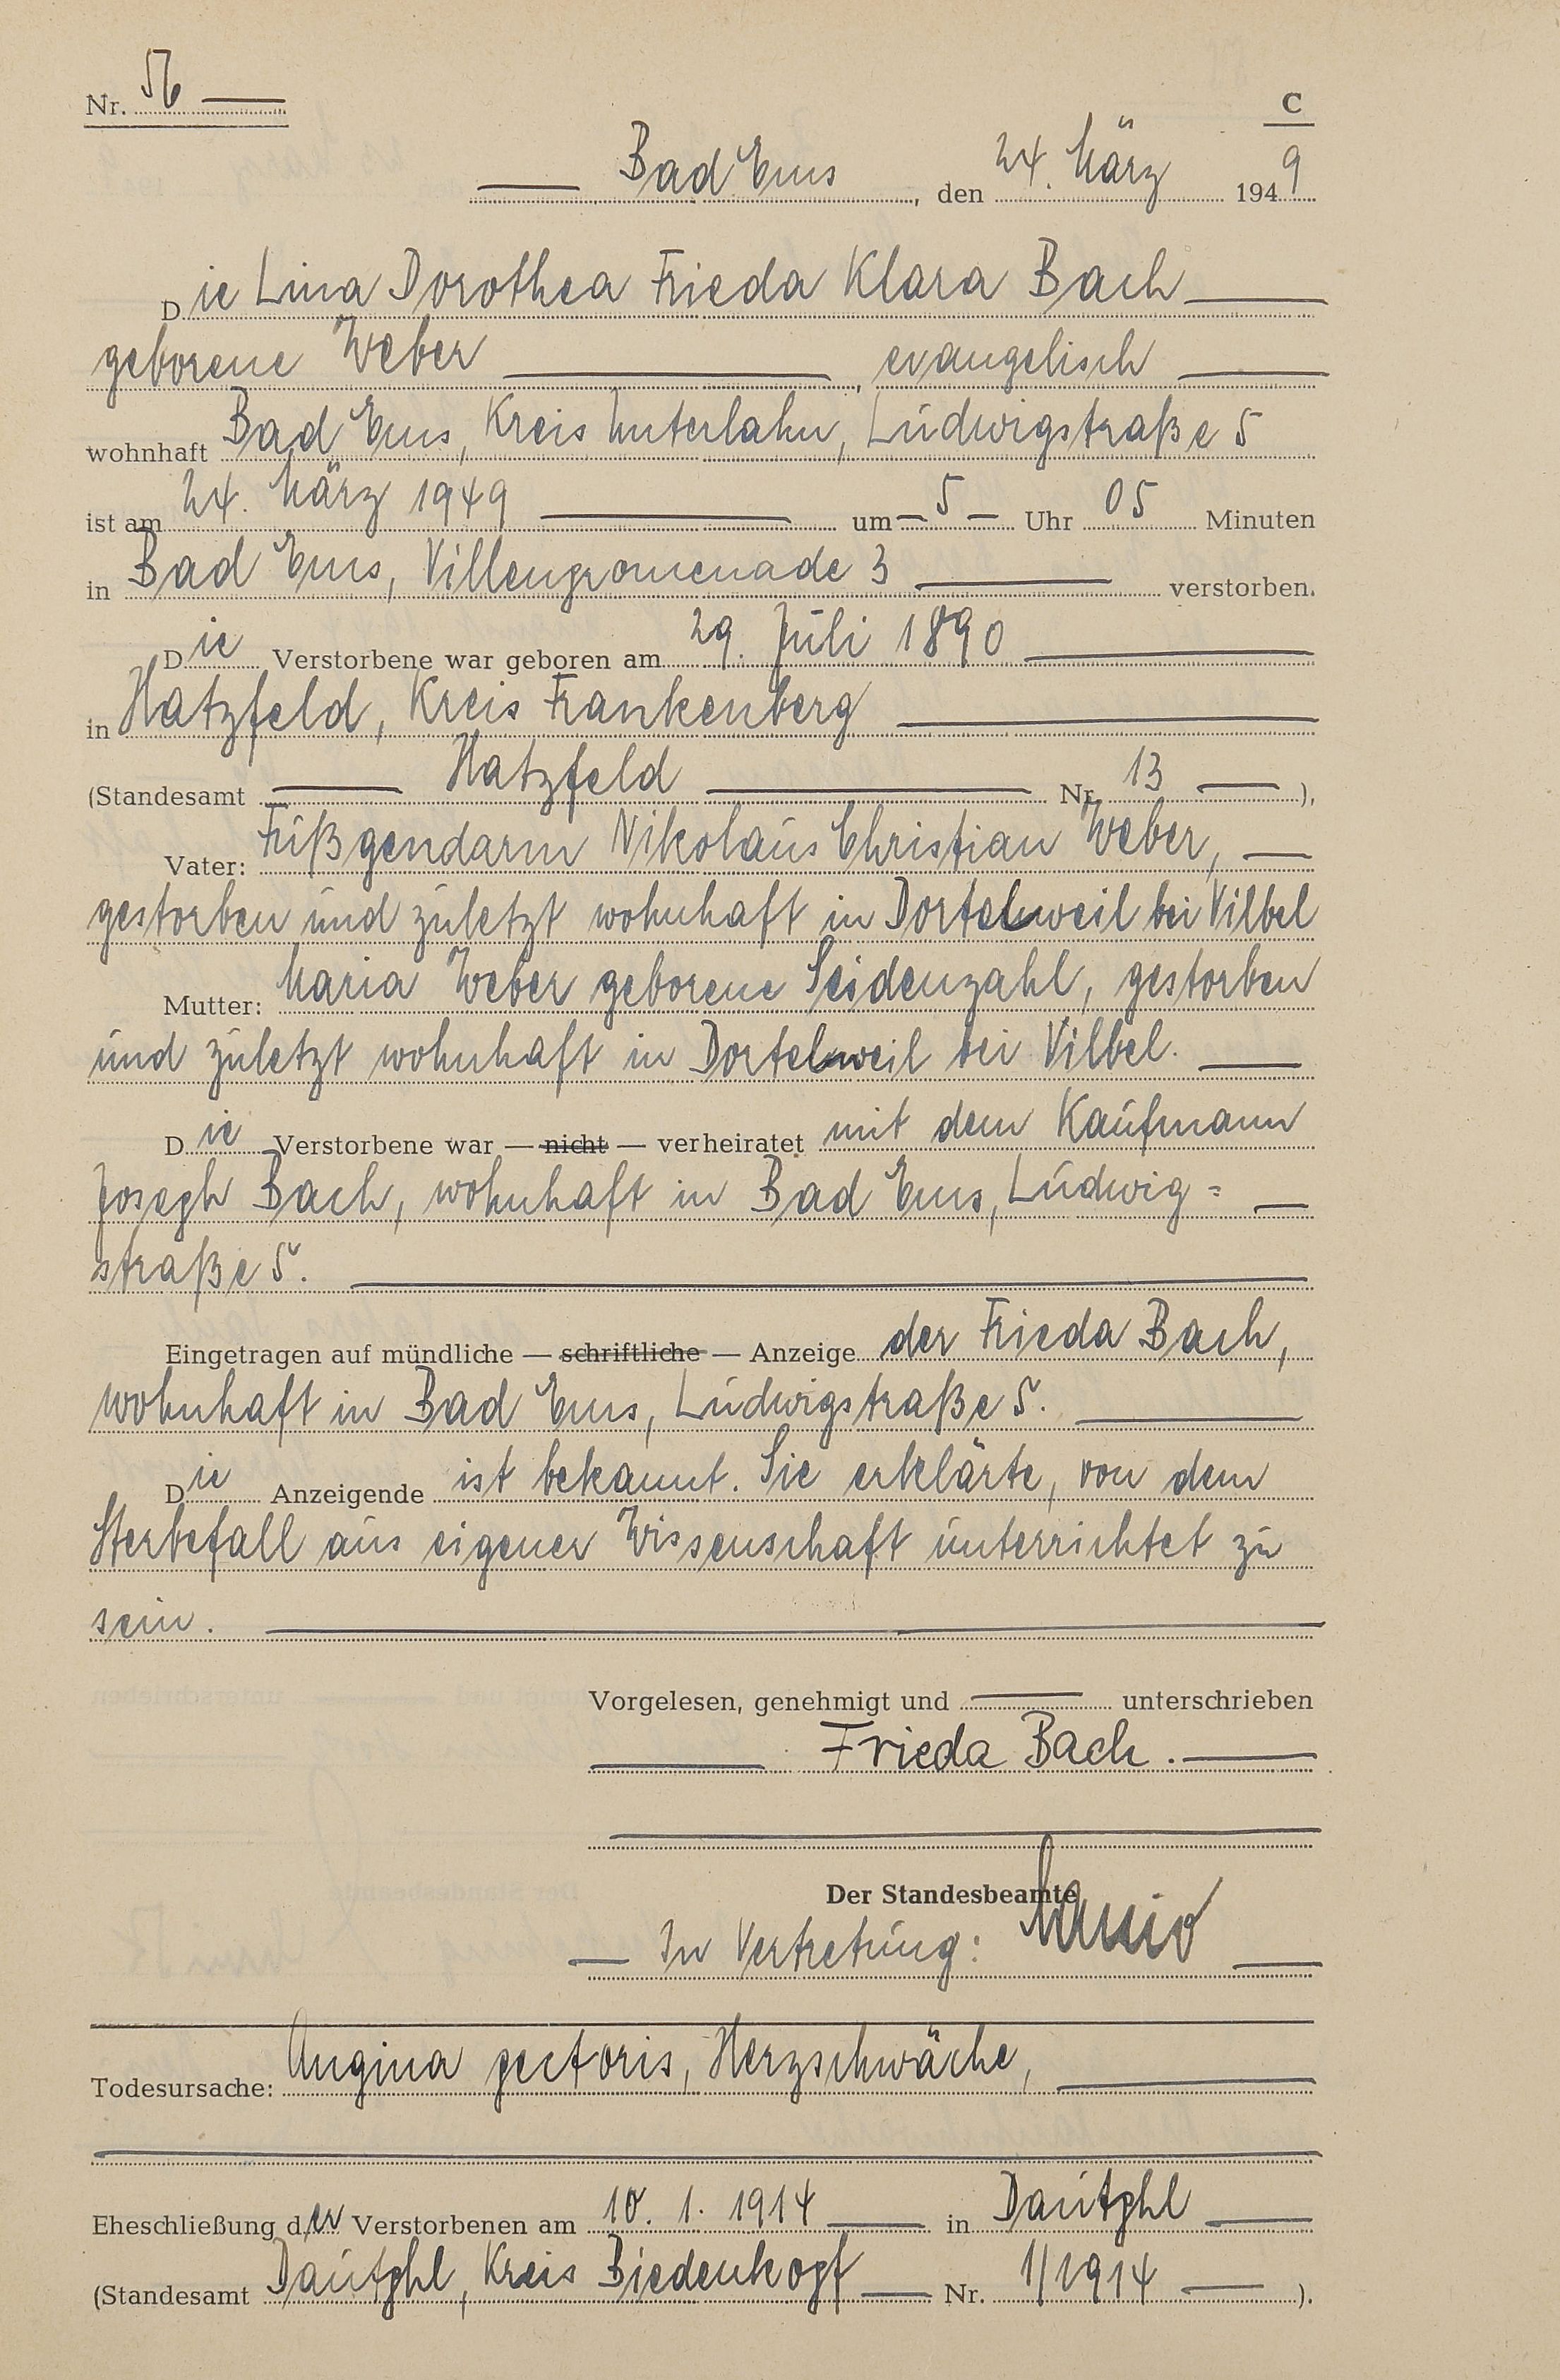 Nr. 56
C
Bad Ems, den 24. März 1949
Die Lina Dorothea Frieda Klara Bach
geborene Weber, evangelisch
wohnhaft Bad Ems, Kreis Unterlahn, Ludwigstraße 5
ist am 24. März 1949 um 5 Uhr 05 Minuten
in Bad Ems, Villenpromenade 3 verstorben.
Die Verstorbene war geboren am 29. Juli 1890
in Hatzfeld, Kreis Frankenberg
(Standesamt Hatzfeld Nr. 13),
Vater: Fußgendarm Nikolaus Christian Weber,
gestorben und zuletzt wohnhaft in Dortelweil bei Vilbel
Mutter: Maria Weber geborene Seidenzahl, gestorben
und zuletzt wohnhaft in Dortelweil bei Vilbel.
Die Verstorbene war — nicht — verheiratet mit dem Kaufmann
Joseph Bach, wohnhaft in Bad Ems, Ludwig=
straße 5.
Eingetragen auf mündliche — schriftliche — Anzeige der Frieda Bach,
wohnhaft in Bad Ems, Ludwigstraße 5.
Die Anzeigende ist bekannt. Sie erklärte, von dem
Sterbefall aus eigener Wissenschaft unterrichtet zu
sein.
Vorgelesen, genehmigt und unterschrieben
Frieda Bach.
Der Standesbeamte
In Vertretung:
Todesursache: Angina pectoris, Herzschwäche,
Eheschließung der Verstorbenen am 10. 1. 1914 in Dautphl
(Standesamt Dautphl, Kreis Biedenkopf Nr. 1/1914).